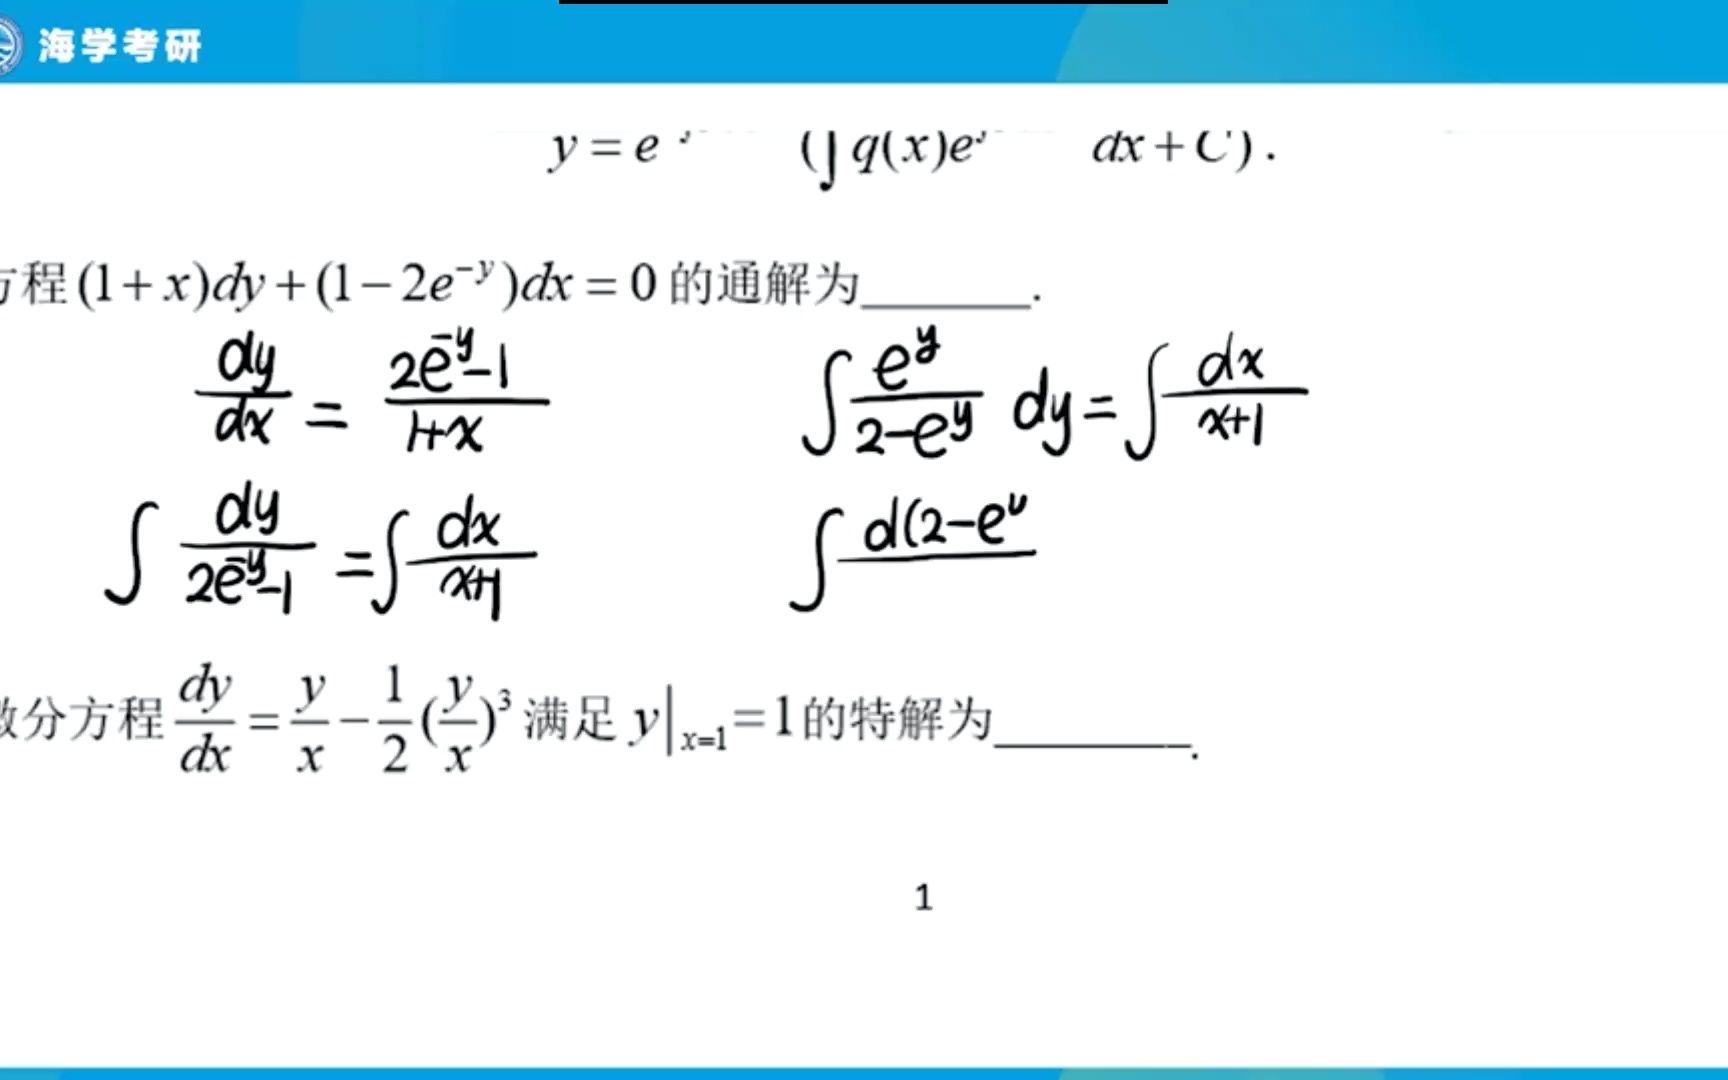 海学考研
y = e (∫ q(x)e dx + C).
方程(1+x)dy+(1−2e^{−y})dx = 0 的通解为______.
dy/dx = (2e^{-y}-1)/(1+x)
∫ e^y/(2-e^y) dy = ∫ dx/(x+1)
∫ dy/(2e^{-y}-1) = ∫ dx/(x+1)
∫ d(2-e^y
微分方程 dy/dx = y/x − 1/2 (y/x)^3 满足 y|_{x=1} = 1的特解为______.
1